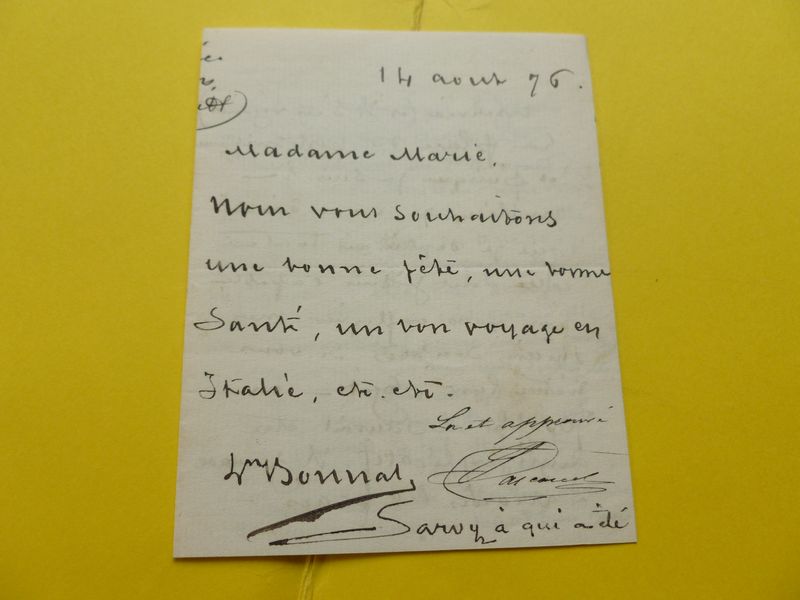 14 aout 76.
Madame Marie,
Nous vous souhaitons
une bonne fête, une bonne
Santé, un bon voyage en
Italie, etc. etc.
Lu et approuvé
Ln Bonnat,
Sarvy à qui aidé